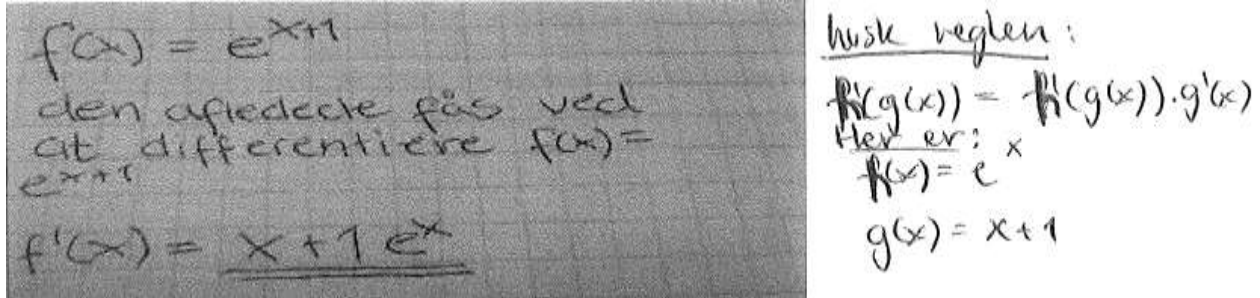 f(x) = e^{x+1}
den afledede fås ved
at differentiere f(x)=
e^{x+1}
f'(x) = x+1 e^x
husk reglen:
h'(g(x)) = h'(g(x))·g'(x)
Her er:
h(x) = e^x
g(x) = x+1